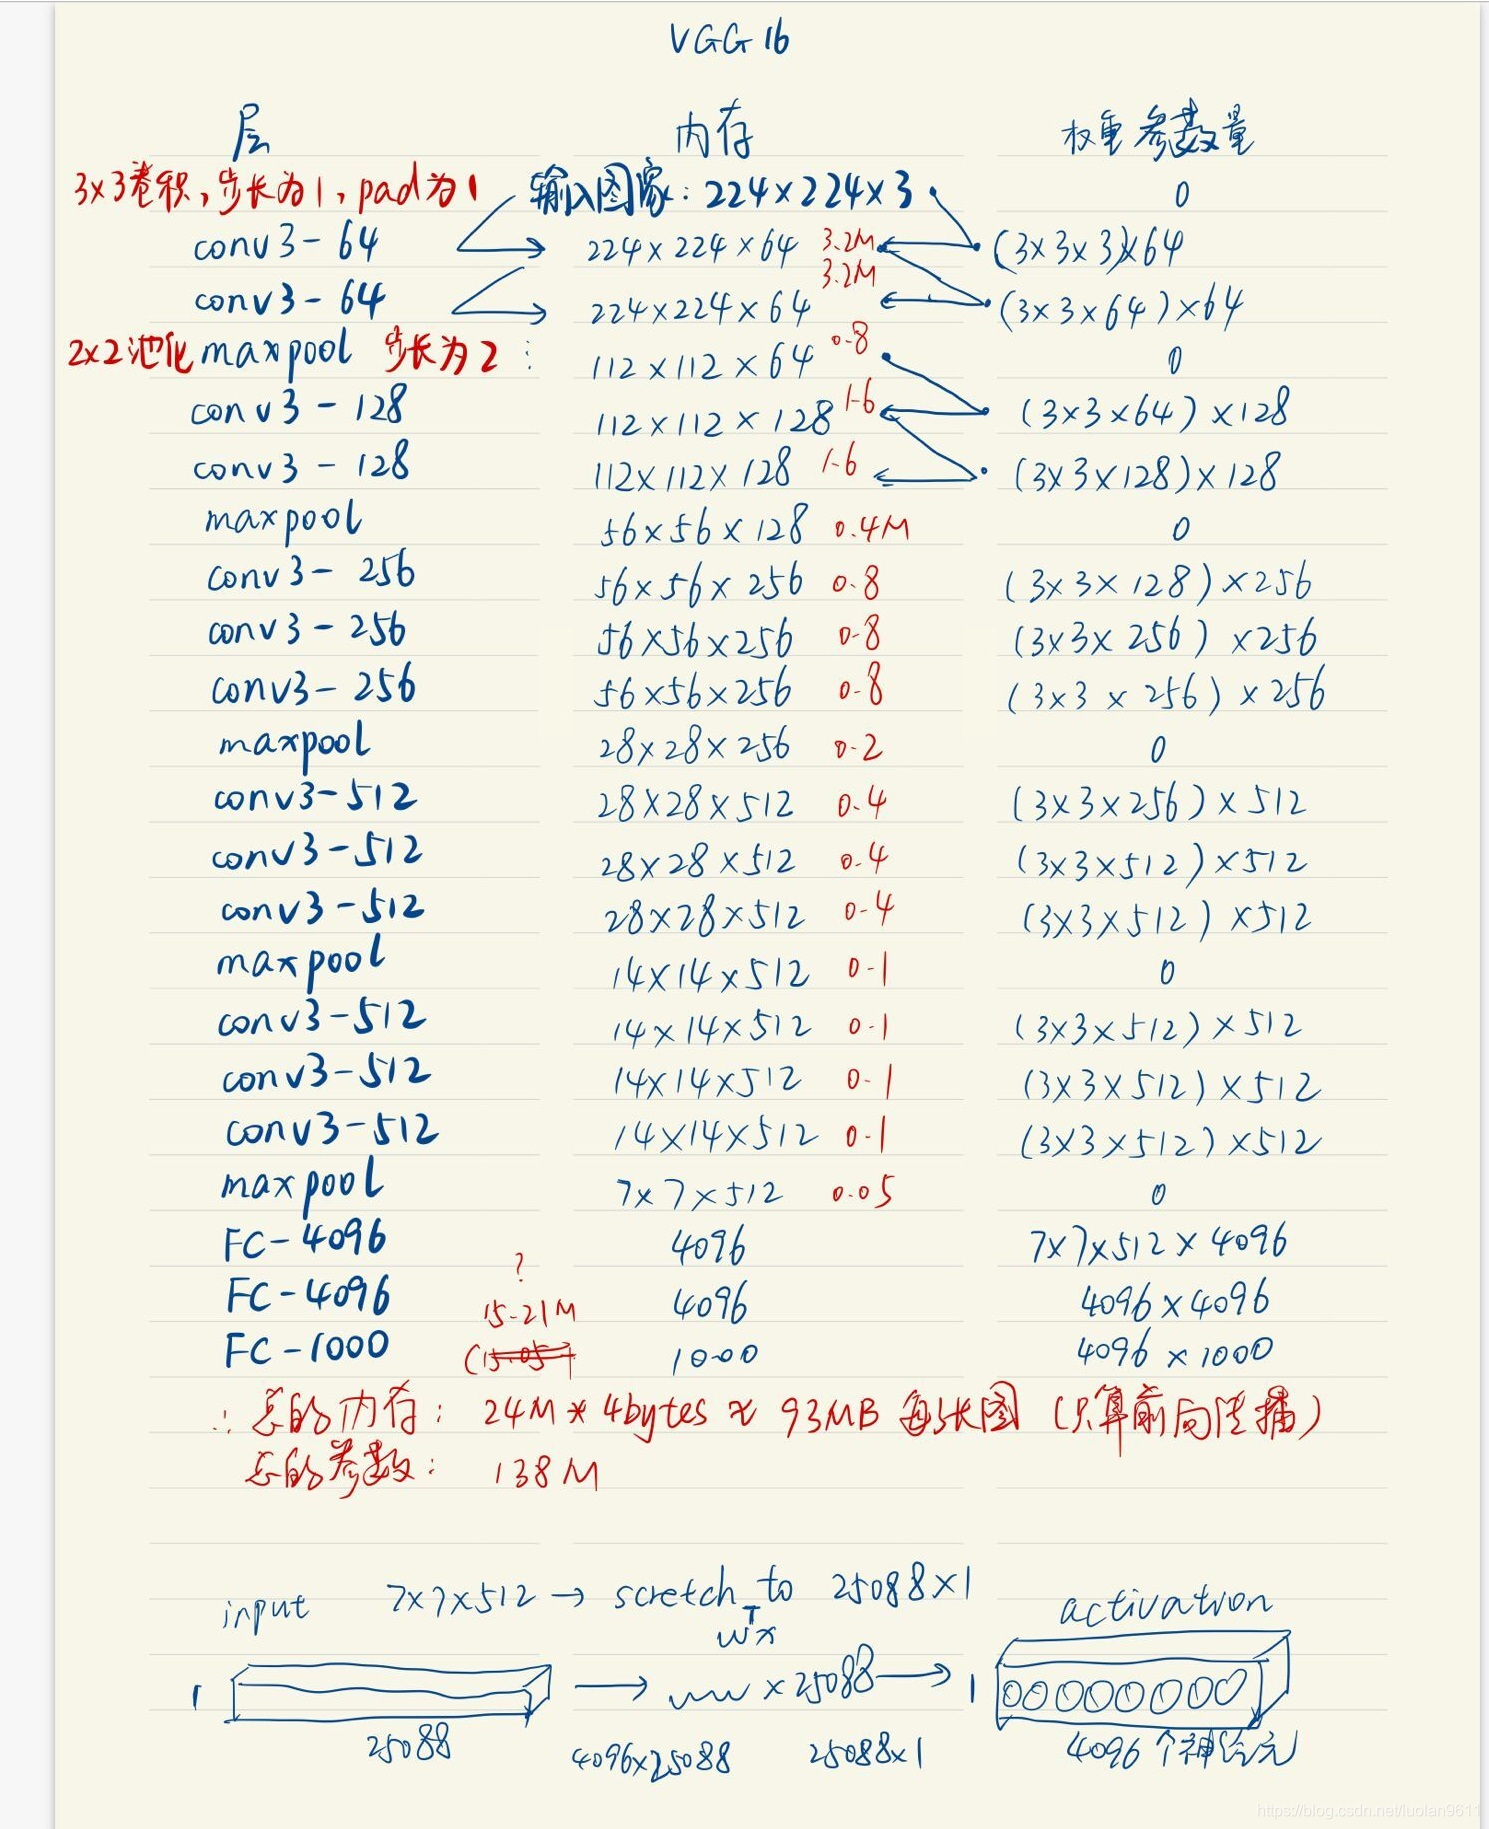 VGG16
层 内存 权重参数量
3×3卷积,步长为1,pad为1 输入图象:224×224×3 0
conv3-64 224×224×64 3.2M (3×3×3)×64
conv3-64 224×224×64 3.2M (3×3×64)×64
2×2池化 maxpool 步长为2 : 112×112×64 0.8 0
conv3-128 112×112×128 1.6 (3×3×64)×128
conv3-128 112×112×128 1.6 (3×3×128)×128
maxpool 56×56×128 0.4M 0
conv3-256 56×56×256 0.8 (3×3×128)×256
conv3-256 56×56×256 0.8 (3×3×256)×256
conv3-256 56×56×256 0.8 (3×3×256)×256
maxpool 28×28×256 0.2 0
conv3-512 28×28×512 0.4 (3×3×256)×512
conv3-512 28×28×512 0.4 (3×3×512)×512
conv3-512 28×28×512 0.4 (3×3×512)×512
maxpool 14×14×512 0.1 0
conv3-512 14×14×512 0.1 (3×3×512)×512
conv3-512 14×14×512 0.1 (3×3×512)×512
conv3-512 14×14×512 0.1 (3×3×512)×512
maxpool 7×7×512 0.05 0
FC-4096 4096 7×7×512×4096
?
FC-4096 15.21M 4096 4096×4096
FC-1000 1000 4096×1000
∴总的内存: 24M * 4bytes ≈ 93MB 每张图 (只算前向传播)
总的参数: 138M
input 7×7×512 → scretch to 25088×1 activation
wᵀx
1 → × 25088 → 1
25088 4096×25088 25088×1 4096个神经元
https://blog.csdn.net/luolan9611